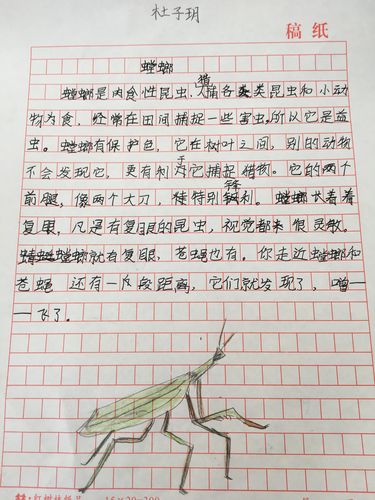 杜子玥
稿纸
螳螂
螳螂是肉食性昆虫,猎捕各类昆虫和小动
物为食,经常在田间捕捉一些害虫。所以它是益
虫。螳螂有保护色,它在树叶之间,别的动物
不会发现它,更有利于它捕捉猎物。它的两个
前腿,像两个大刀,特别锋利。螳螂长着着
复眼,凡是有复眼的昆虫,视觉都很灵敏。
螳螂就有复眼,苍蝇也有。你走近螳螂和
苍蝇还有一段距离,它们就发现了,噌
一飞了。
15×20=300